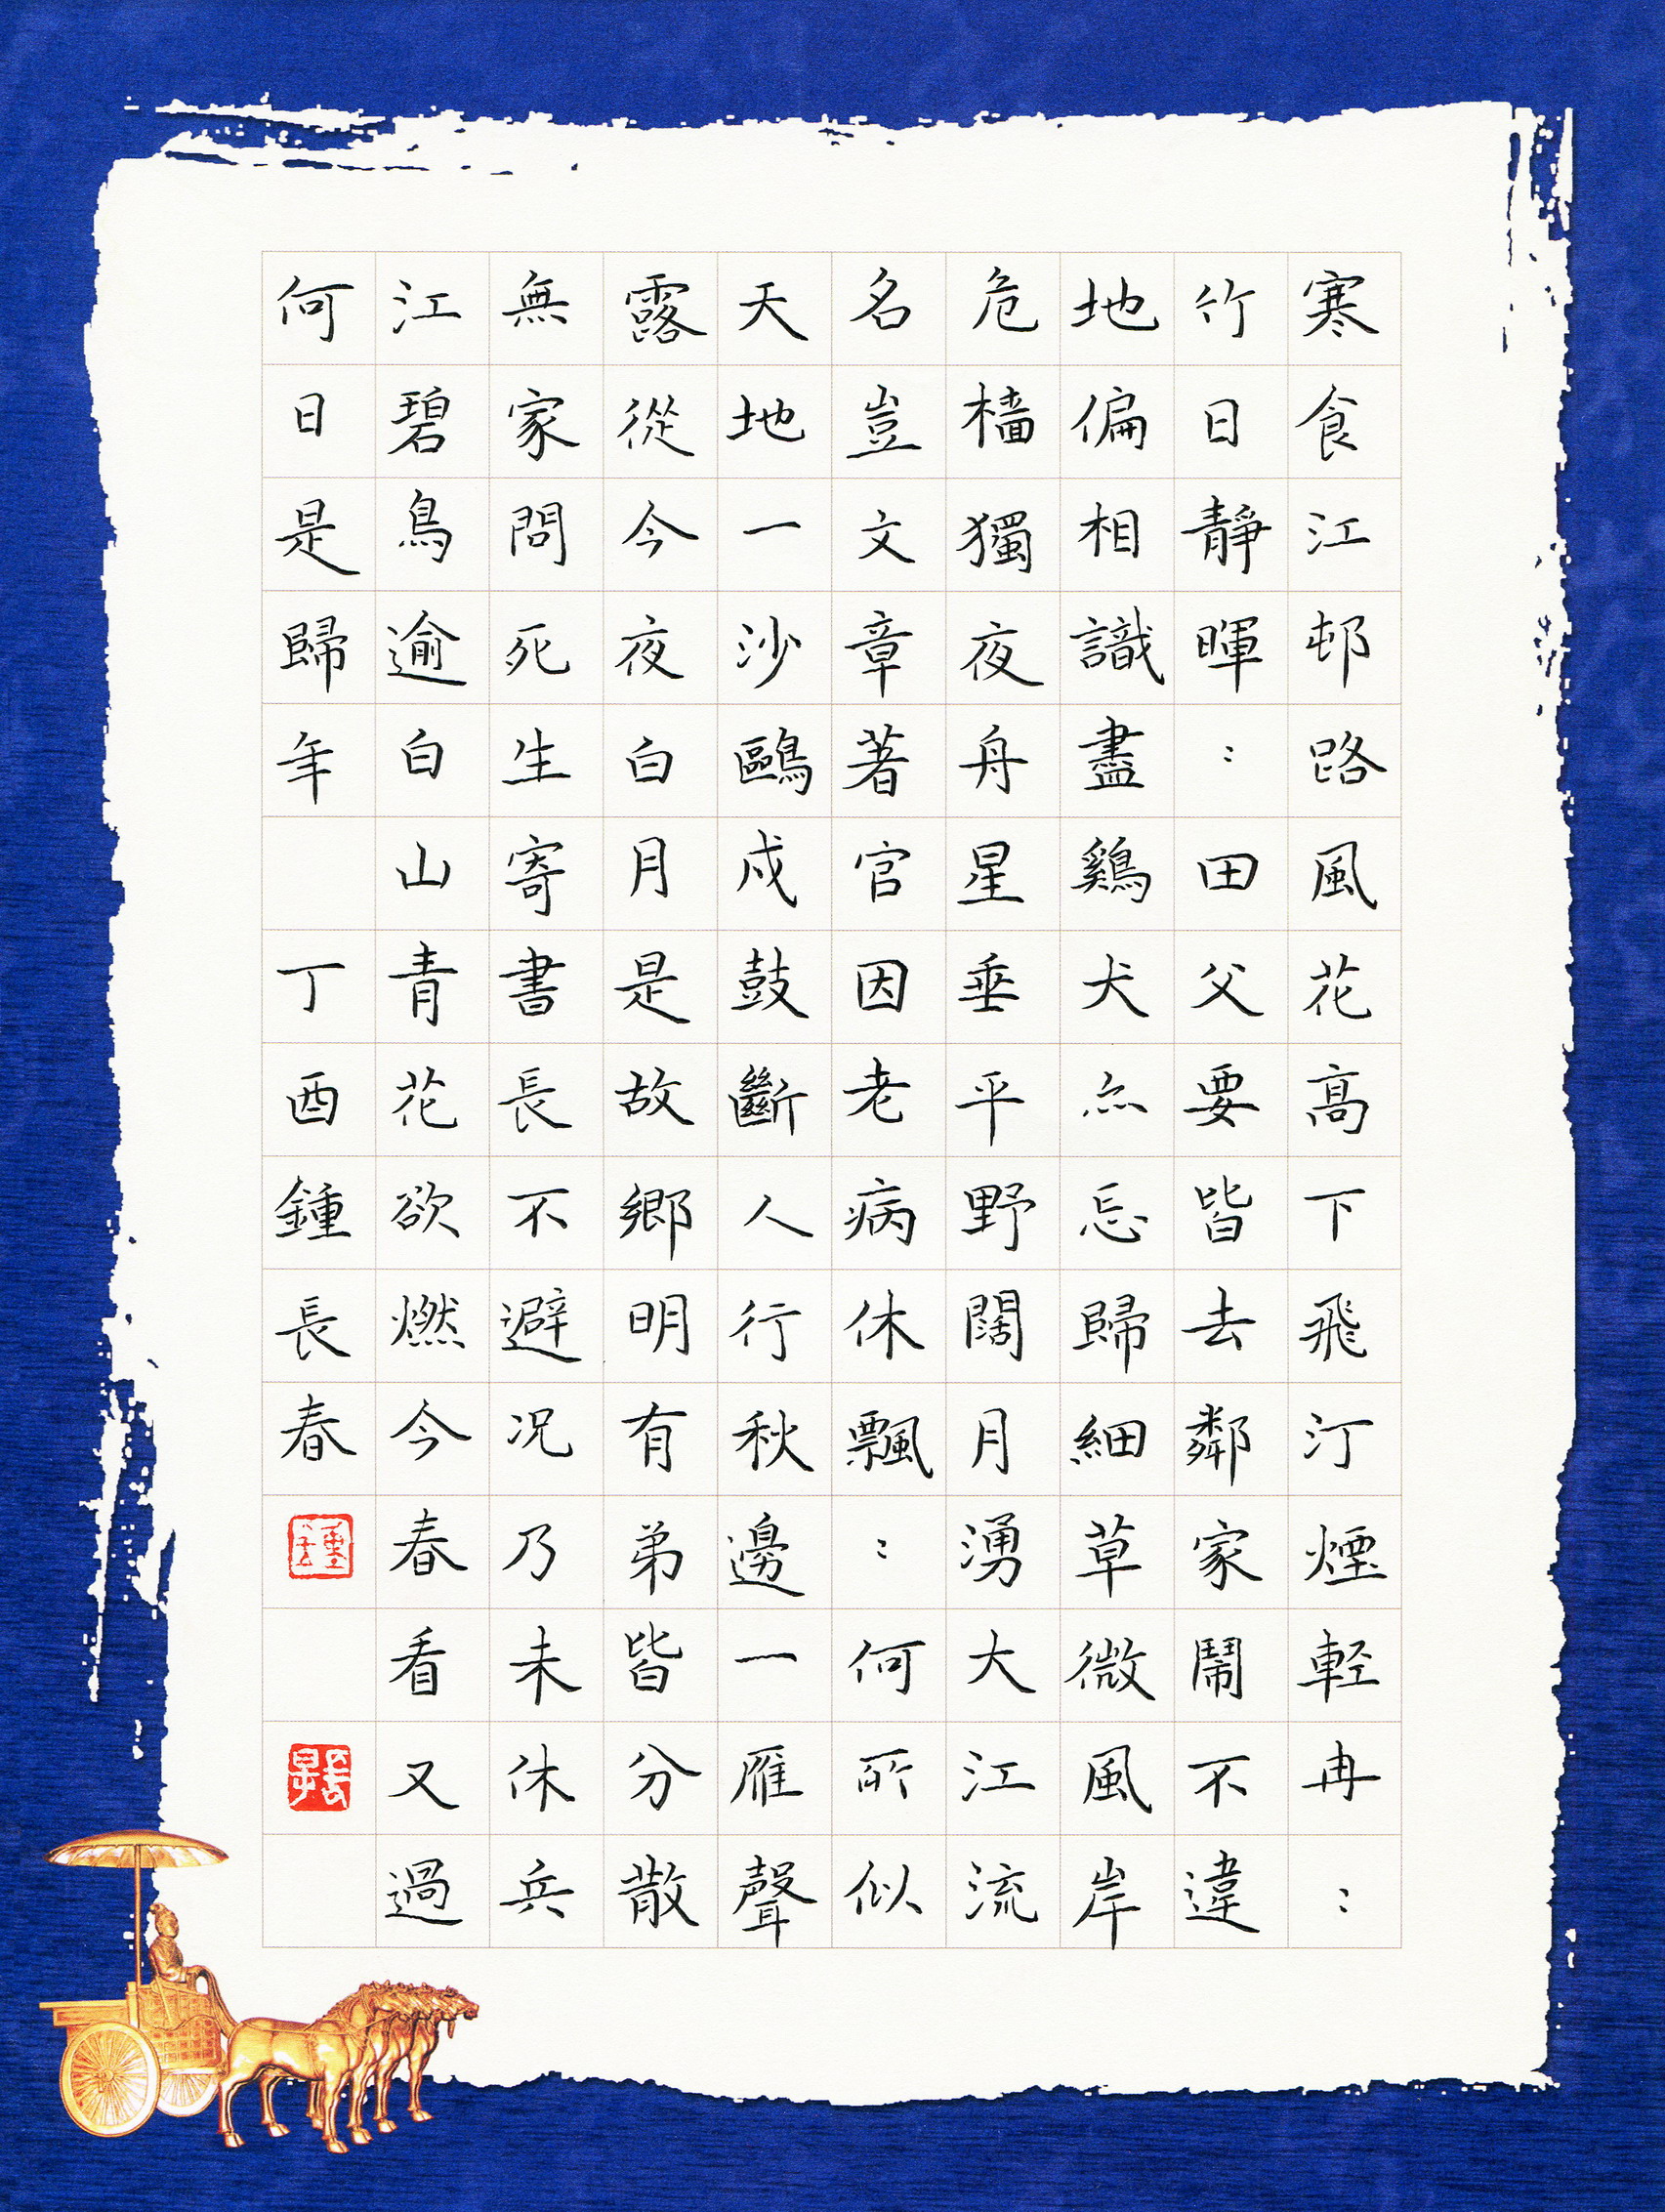 寒食江邨路風花高下飛汀煙軽冉：
竹日靜暉：田父要皆去鄰家鬧不違
地偏相識盡鷄犬亦忘歸細草微風岸
危檣獨夜舟星垂平野闊月湧大江流
名豈文章著官因老病休飄：何所似
天地一沙鷗戍鼓斷人行秋邊一雁聲
露從今夜白月是故鄉明有弟皆分散
無家問死生寄書長不避况乃未休兵
江碧鳥逾白山青花欲燃今春看又過
何日是歸年 丁酉鍾長春
鍾